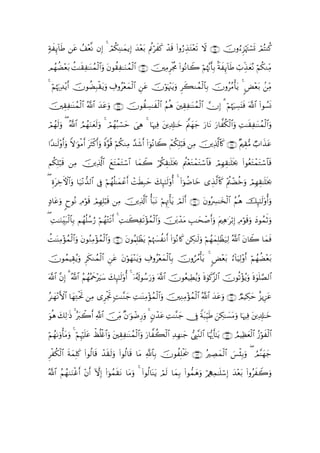 كُنتُمْ تَسْتَهْزِءُونَ ۝ لَا تَعْتَذِرُوا۟ قَدْ كَفَرْتُم بَعْدَ إِيمَـٰنِكُمْ ۚ إِن نَّعْفُ عَن طَآئِفَةٍ
مِّنكُمْ نُعَذِّبْ طَآئِفَةًۢ بِأَنَّهُمْ كَانُوا۟ مُجْرِمِينَ ۝ ٱلْمُنَـٰفِقُونَ وَٱلْمُنَـٰفِقَـٰتُ بَعْضُهُم
مِّنۢ بَعْضٍ ۚ يَأْمُرُونَ بِٱلْمُنكَرِ وَيَنْهَوْنَ عَنِ ٱلْمَعْرُوفِ وَيَقْبِضُونَ أَيْدِيَهُمْ ۚ
نَسُوا۟ ٱللَّهَ فَنَسِيَهُمْ ۗ إِنَّ ٱلْمُنَـٰفِقِينَ هُمُ ٱلْفَـٰسِقُونَ ۝ وَعَدَ ٱللَّهُ ٱلْمُنَـٰفِقِينَ
وَٱلْمُنَـٰفِقَـٰتِ وَٱلْكُفَّارَ نَارَ جَهَنَّمَ خَـٰلِدِينَ فِيهَا ۚ هِىَ حَسْبُهُمْ ۚ وَلَعَنَهُمُ ٱللَّهُ ۖ وَلَهُمْ
عَذَابٌ مُّقِيمٌ ۝ كَٱلَّذِينَ مِن قَبْلِكُمْ كَانُوٓا۟ أَشَدَّ مِنكُمْ قُوَّةً وَأَكْثَرَ أَمْوَٰلًا وَأَوْلَـٰدًا
فَٱسْتَمْتَعُوا۟ بِخَلَـٰقِهِمْ فَٱسْتَمْتَعْتُم بِخَلَـٰقِكُمْ كَمَا ٱسْتَمْتَعَ ٱلَّذِينَ مِن قَبْلِكُم
بِخَلَـٰقِهِمْ وَخُضْتُمْ كَٱلَّذِى خَاضُوٓا۟ ۚ أُو۟لَـٰٓئِكَ حَبِطَتْ أَعْمَـٰلُهُمْ فِى ٱلدُّنْيَا وَٱلْـَٔاخِرَةِ ۖ
وَأُو۟لَـٰٓئِكَ هُمُ ٱلْخَـٰسِرُونَ ۝ أَلَمْ يَأْتِهِمْ نَبَأُ ٱلَّذِينَ مِن قَبْلِهِمْ قَوْمِ نُوحٍ وَعَادٍ
وَثَمُودَ وَقَوْمِ إِبْرَٰهِيمَ وَأَصْحَـٰبِ مَدْيَنَ وَٱلْمُؤْتَفِكَـٰتِ ۚ أَتَتْهُمْ رُسُلُهُم بِٱلْبَيِّنَـٰتِ ۖ
فَمَا كَانَ ٱللَّهُ لِيَظْلِمَهُمْ وَلَـٰكِن كَانُوٓا۟ أَنفُسَهُمْ يَظْلِمُونَ ۝ وَٱلْمُؤْمِنُونَ وَٱلْمُؤْمِنَـٰتُ
بَعْضُهُمْ أَوْلِيَآءُ بَعْضٍ ۚ يَأْمُرُونَ بِٱلْمَعْرُوفِ وَيَنْهَوْنَ عَنِ ٱلْمُنكَرِ وَيُقِيمُونَ
ٱلصَّلَوٰةَ وَيُؤْتُونَ ٱلزَّكَوٰةَ وَيُطِيعُونَ ٱللَّهَ وَرَسُولَهُۥٓ ۚ أُو۟لَـٰٓئِكَ سَيَرْحَمُهُمُ ٱللَّهُ ۗ إِنَّ ٱللَّهَ
عَزِيزٌ حَكِيمٌ ۝ وَعَدَ ٱللَّهُ ٱلْمُؤْمِنِينَ وَٱلْمُؤْمِنَـٰتِ جَنَّـٰتٍ تَجْرِى مِن تَحْتِهَا ٱلْأَنْهَـٰرُ
خَـٰلِدِينَ فِيهَا وَمَسَـٰكِنَ طَيِّبَةً فِى جَنَّـٰتِ عَدْنٍ ۚ وَرِضْوَٰنٌ مِّنَ ٱللَّهِ أَكْبَرُ ۚ ذَٰلِكَ هُوَ
ٱلْفَوْزُ ٱلْعَظِيمُ ۝ يَـٰٓأَيُّهَا ٱلنَّبِىُّ جَـٰهِدِ ٱلْكُفَّارَ وَٱلْمُنَـٰفِقِينَ وَٱغْلُظْ عَلَيْهِمْ ۚ وَمَأْوَىٰهُمْ
جَهَنَّمُ ۖ وَبِئْسَ ٱلْمَصِيرُ ۝ يَحْلِفُونَ بِٱللَّهِ مَا قَالُوا۟ وَلَقَدْ قَالُوا۟ كَلِمَةَ ٱلْكُفْرِ
وَكَفَرُوا۟ بَعْدَ إِسْلَـٰمِهِمْ وَهَمُّوا۟ بِمَا لَمْ يَنَالُوا۟ ۚ وَمَا نَقَمُوٓا۟ إِلَّآ أَنْ أَغْنَىٰهُمُ ٱللَّهُ